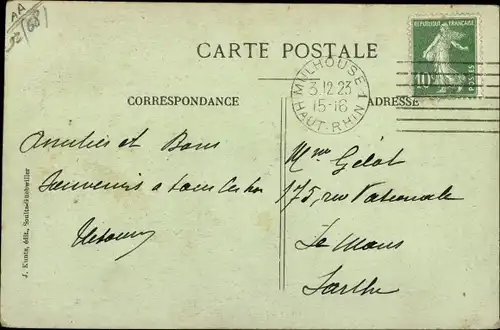 AA
(68)
CARTE POSTALE
REPUBLIQUE FRANÇAISE
10c
POSTES
MULHOUSE 1
3.12 23
15-16
HAUT-RHIN
CORRESPONDANCE
ADRESSE
Amitiés et Bons
Souvenirs à tous
Mme Gélot
175, rue Nationale
Le Mans
Sarthe
J. Kuntz, édit., Soultz-Guebwiller